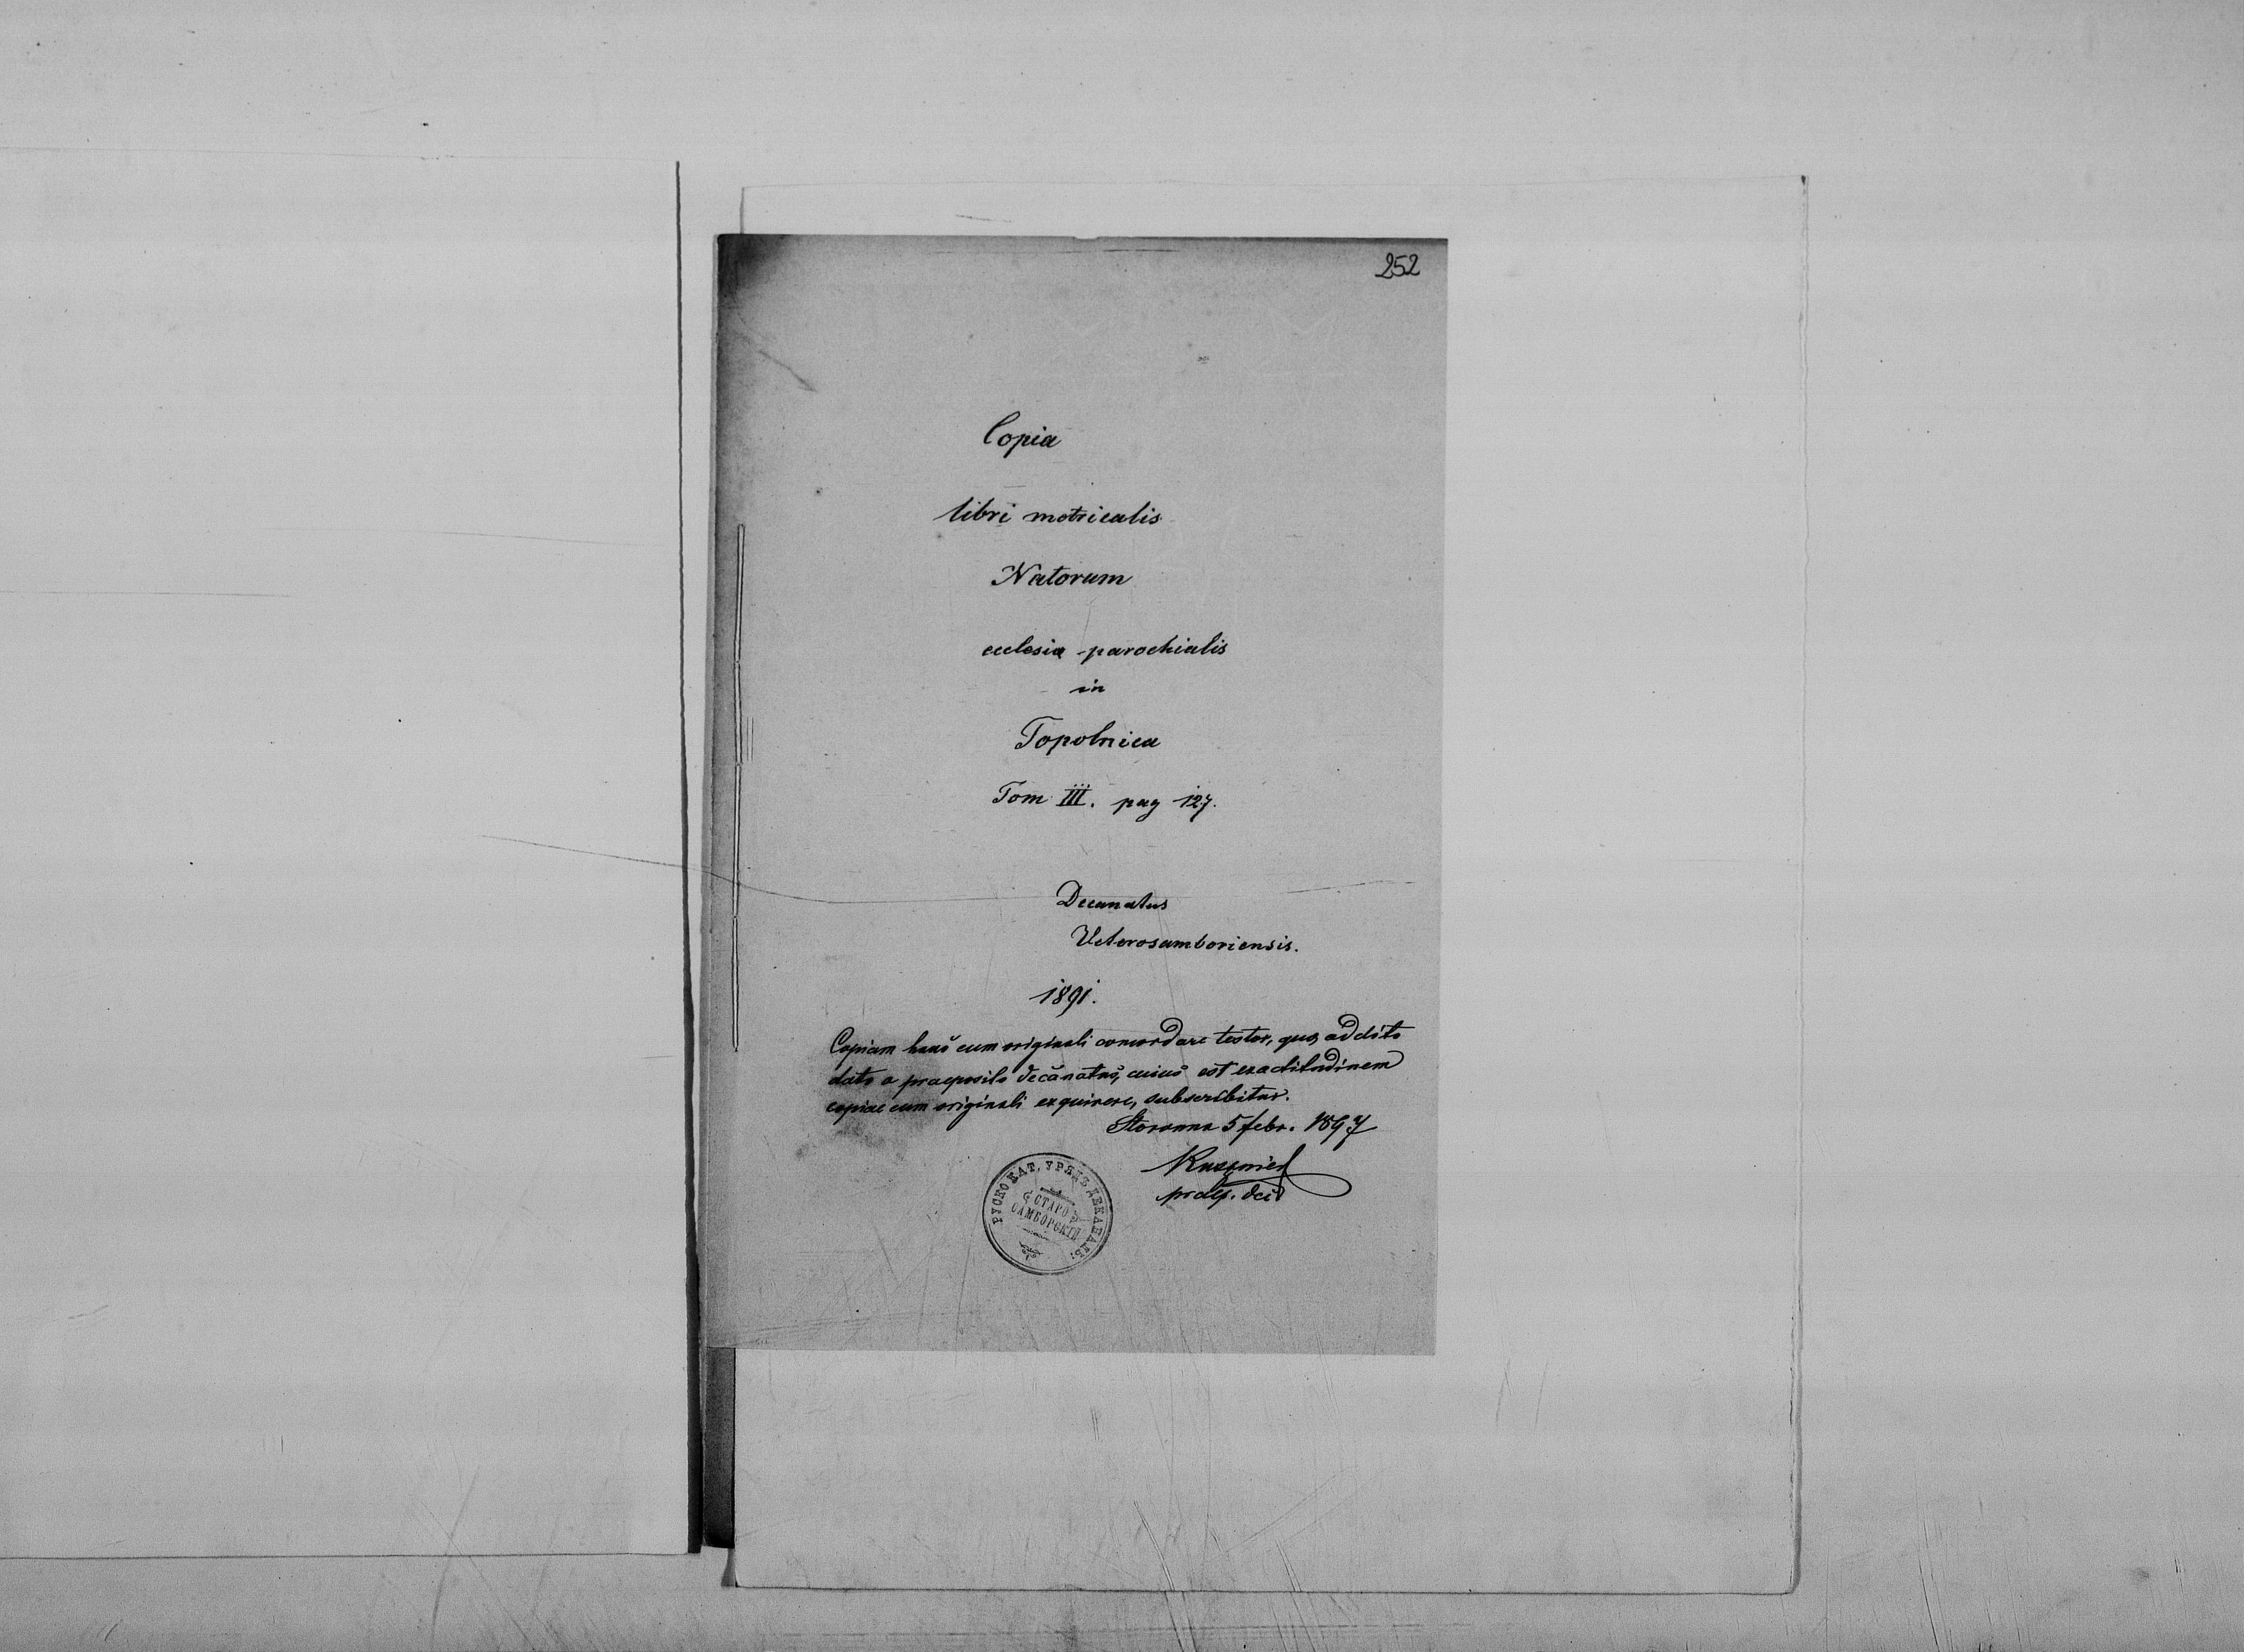 252
Copia
libri metricalis
Natorum
ecclesia parochialis
in
Topolnica
Tom III. pag 127.
Decanatus
Veterosamboriensis.
1891.
Copiam hanc cum originali concordare testor, quo addito
dato a praeposito decanatus, cuius est exactitudinem
copiae cum originali exquirere, subscribitur.
5 febr. 1897
praep. dec
РУСКО КАТ. УРЯДЪ ДЕКАНАЛЬ.
СТАРО
САМБОРСКІЙ